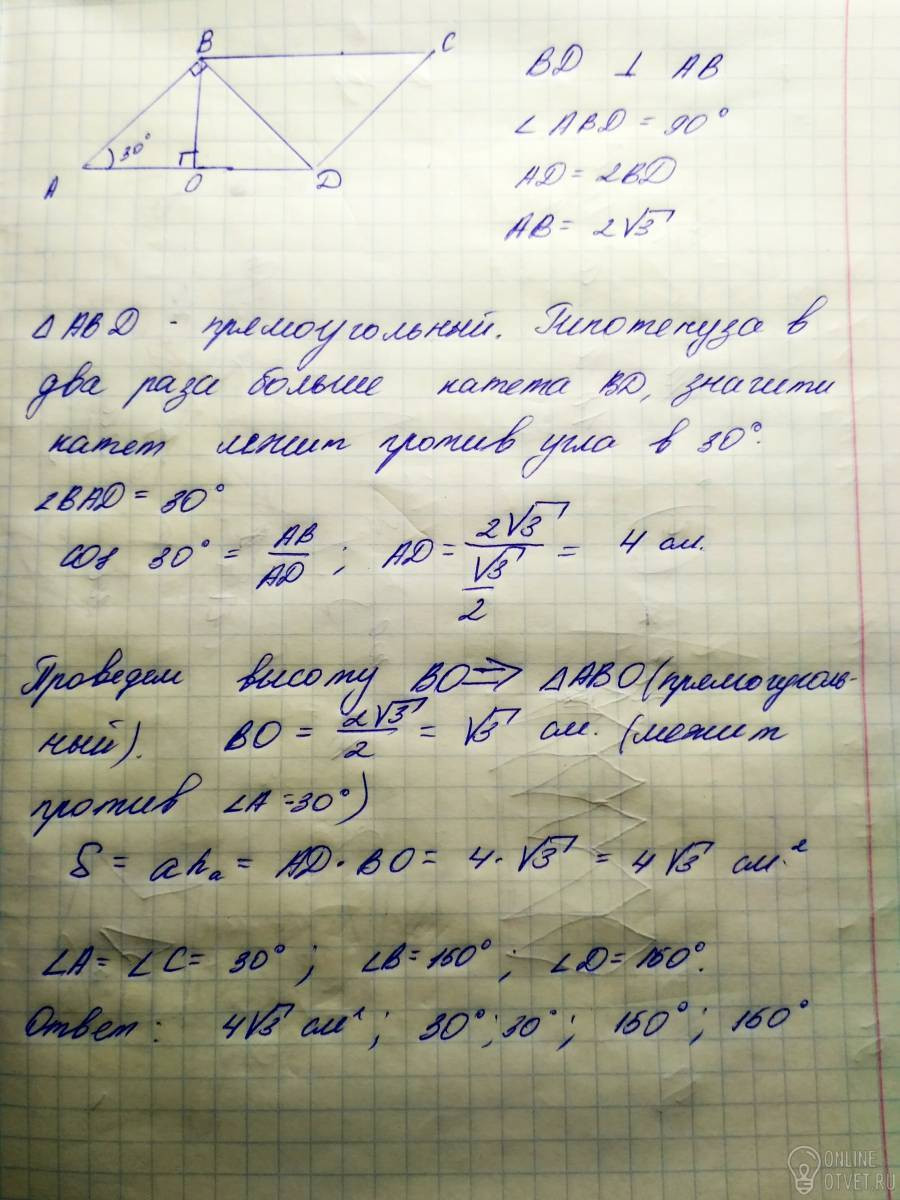 B
C
30°
A
O
D
BD ⊥ AB
∠ABD = 90°
AD = 2BD
AB = 2√3
△ABD - прямоугольный. Гипотенуза в
два раза больше катета BD, значит
катет лежит против угла в 30°.
∠BAD = 30°
cos 30° = AB/AD ; AD = 2√3/(√3/2) = 4 см.
Проведем высоту BO ⇒ △ABO (прямоуголь-
ный). BO = 2√3/2 = √3 см. (лежит
против ∠A = 30°)
S = ahₐ = AD · BO = 4 · √3 = 4√3 см²
∠A = ∠C = 30° ; ∠B = 150° ; ∠D = 150°.
Ответ: 4√3 см² ; 30° ; 30° ; 150° ; 150°
ONLINE
OTVET.RU